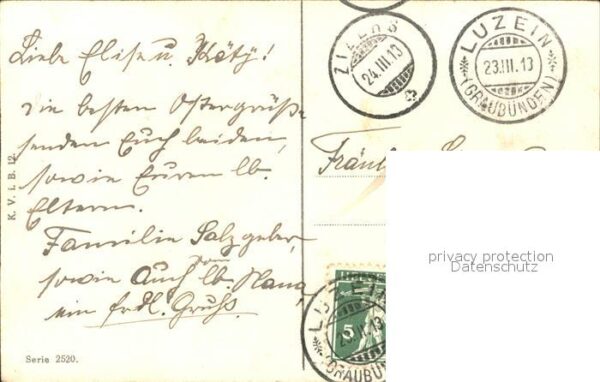 Liebe Elise u. Käty!
Die besten Ostergrüße
senden Euch beiden,
sowie Euren lb.
Eltern.
Familie Salzgeber,
sowie Auch lb. Nana,
ein frdl. Gruß.
K. V. i. B. 12
Serie 2520.
ZILLIS
24.III.13
LUZEIN
23.III.13
(GRAUBÜNDEN)
privacy protection
Datenschutz
HELVE
5
LUZEIN
23.III.13
(GRAUBÜNDEN)